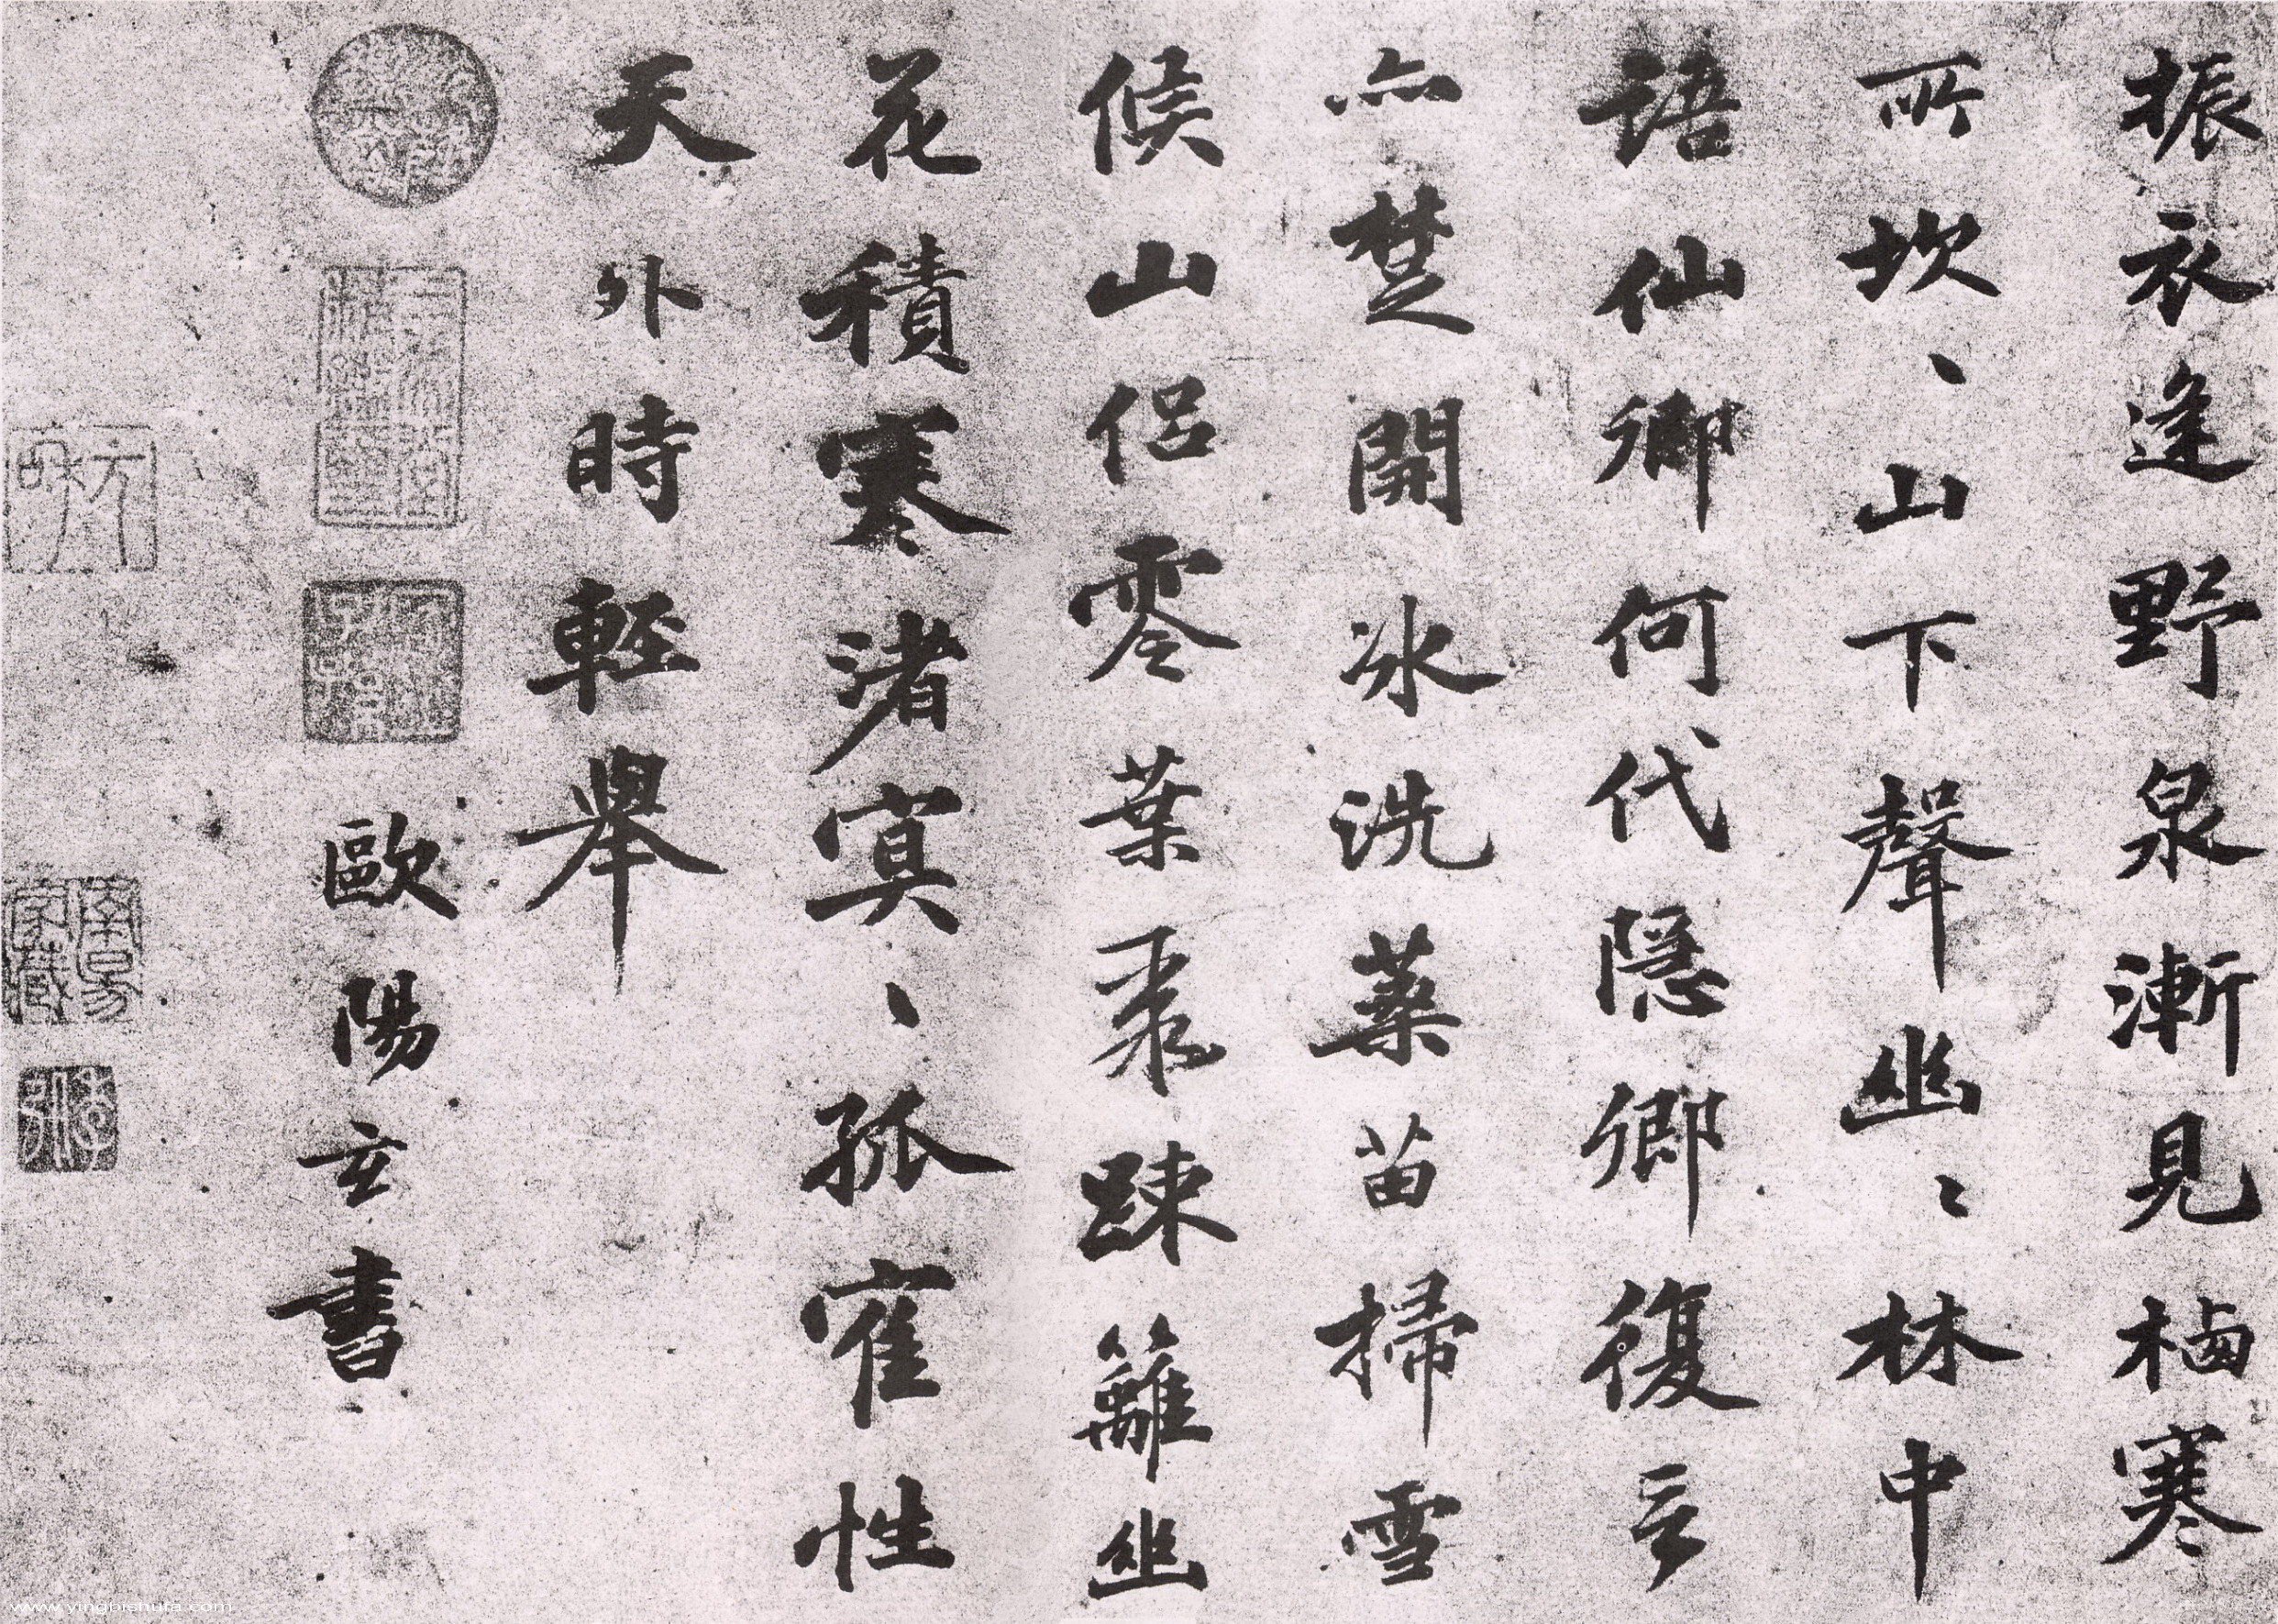 振衣逢野泉漸見栖寒
所坎、山下聲幽、林中
語仙鄉何代隱鄉復言
亦楚開冰洗藥苗掃雪
候山侶零葉聚踈籬幽
花積寒渚冥、孤寉性
天外時輕舉
歐陽玄書
www.yingbishufa.com